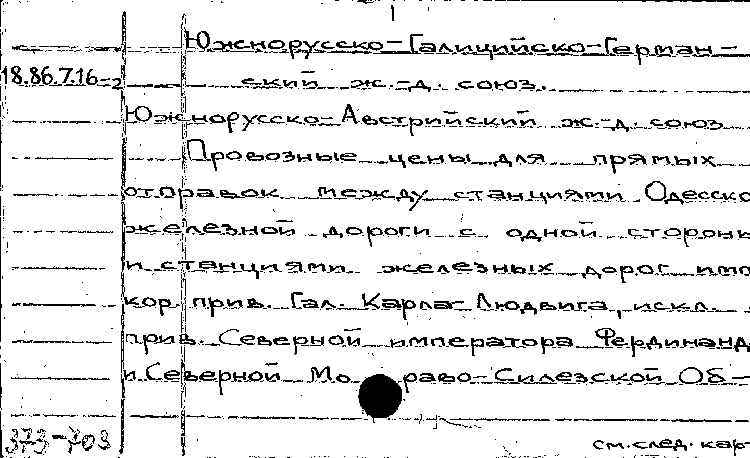 Южнорусско-Галицийско-Герман-
18.86.7.16-2 ский ж.-д. союз.
Южнорусско-Австрийский ж.-д. союз
Провозные цены для прямых
отправок между станциями Одесско
железной дороги с одной сторони
и станциями железных дорог имп
кор. прив. Гал. Карла-Людвига, искл.
прив. Северной императора Фердинанд
и Северной Мо раво-Силезской Об-
373-703 см. след. кар